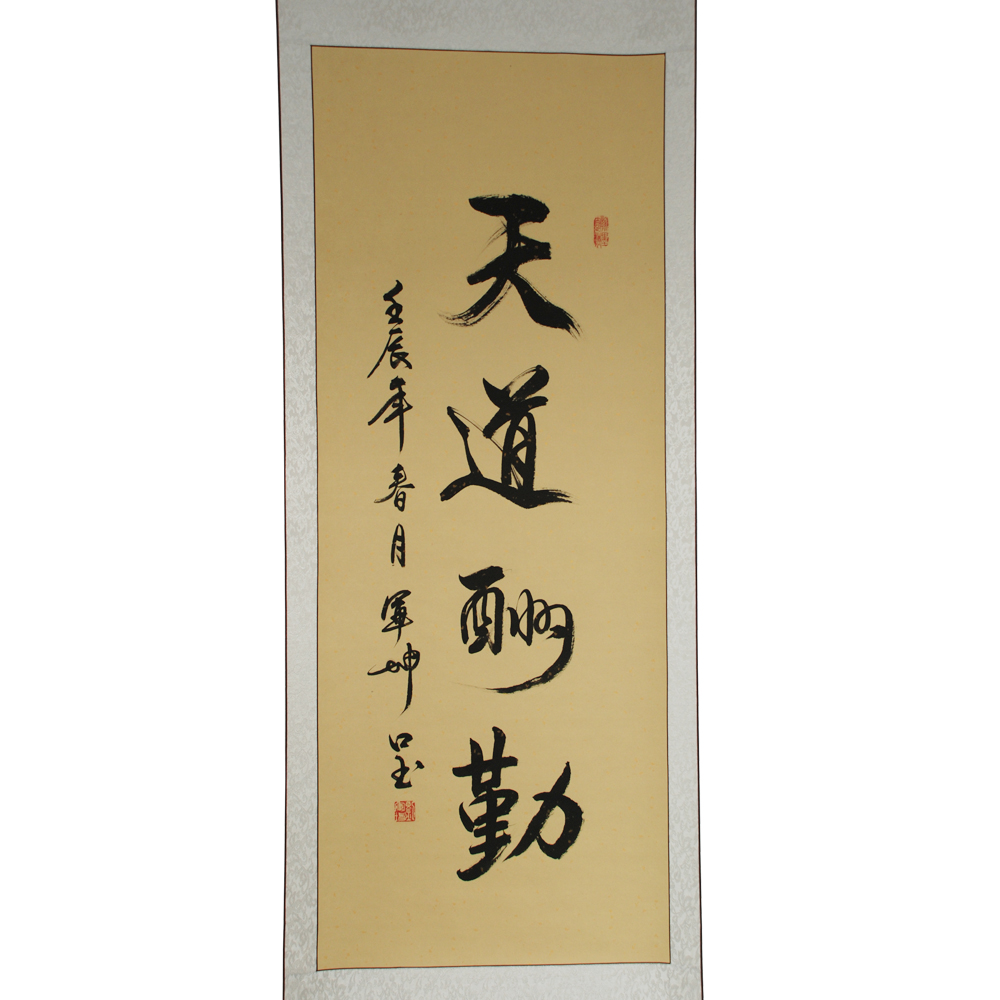 天道酬勤
壬辰年春月軍坤